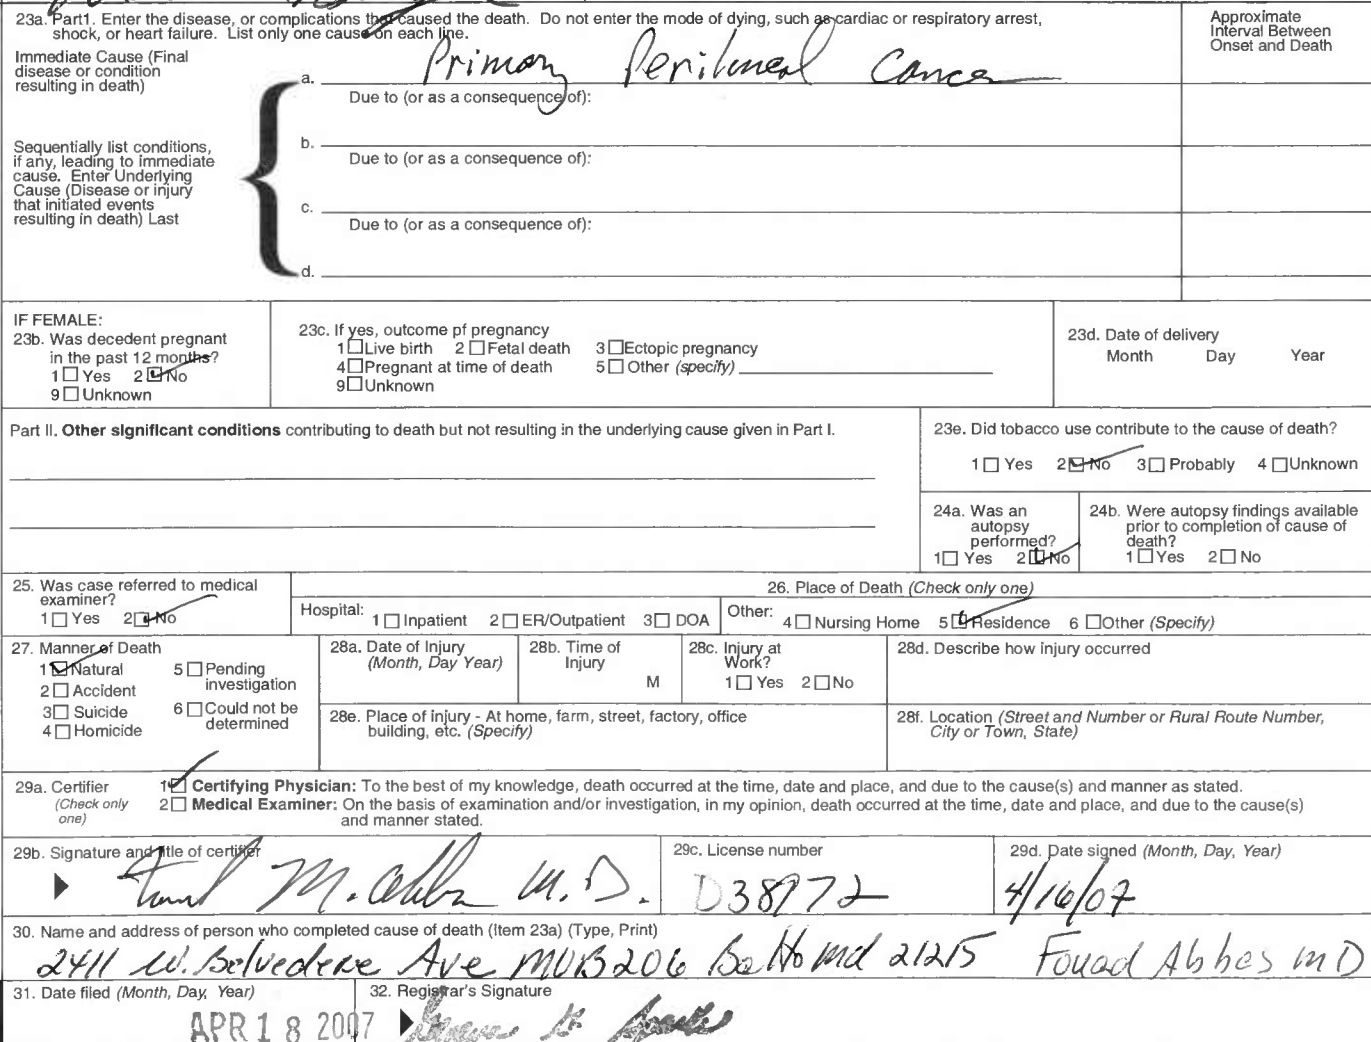 23a. Part1. Enter the disease, or complications that caused the death. Do not enter the mode of dying, such as cardiac or respiratory arrest,
shock, or heart failure. List only one cause on each line.
Approximate
Interval Between
Onset and Death
Immediate Cause (Final
disease or condition
resulting in death)
a. Primary Peritoneal Cancer
Due to (or as a consequence of):
b.
Due to (or as a consequence of):
Sequentially list conditions,
if any, leading to immediate
cause. Enter Underlying
Cause (Disease or injury
that initiated events
resulting in death) Last
c.
Due to (or as a consequence of):
d.
IF FEMALE:
23b. Was decedent pregnant
in the past 12 months?
1 ☐ Yes 2 ☑ No
9 ☐ Unknown
23c. If yes, outcome pf pregnancy
1 ☐ Live birth 2 ☐ Fetal death 3 ☐ Ectopic pregnancy
4 ☐ Pregnant at time of death 5 ☐ Other (specify)
9 ☐ Unknown
23d. Date of delivery
Month Day Year
Part II. Other significant conditions contributing to death but not resulting in the underlying cause given in Part I.
23e. Did tobacco use contribute to the cause of death?
1 ☐ Yes 2 ☑ No 3 ☐ Probably 4 ☐ Unknown
24a. Was an
autopsy
performed?
1 ☐ Yes 2 ☑ No
24b. Were autopsy findings available
prior to completion of cause of
death?
1 ☐ Yes 2 ☐ No
25. Was case referred to medical
examiner?
1 ☐ Yes 2 ☑ No
26. Place of Death (Check only one)
Hospital: 1 ☐ Inpatient 2 ☐ ER/Outpatient 3 ☐ DOA Other: 4 ☐ Nursing Home 5 ☑ Residence 6 ☐ Other (Specify)
27. Manner of Death
1 ☑ Natural 5 ☐ Pending
investigation
2 ☐ Accident
3 ☐ Suicide 6 ☐ Could not be
determined
4 ☐ Homicide
28a. Date of Injury
(Month, Day Year)
28b. Time of
Injury
M
28c. Injury at
Work?
1 ☐ Yes 2 ☐ No
28d. Describe how injury occurred
28e. Place of injury - At home, farm, street, factory, office
building, etc. (Specify)
28f. Location (Street and Number or Rural Route Number,
City or Town, State)
29a. Certifier
(Check only
one)
1 ☑ Certifying Physician: To the best of my knowledge, death occurred at the time, date and place, and due to the cause(s) and manner as stated.
2 ☐ Medical Examiner: On the basis of examination and/or investigation, in my opinion, death occurred at the time, date and place, and due to the cause(s)
and manner stated.
29b. Signature and title of certifier
M. Abbas M.D.
29c. License number
D38972
29d. Date signed (Month, Day, Year)
4/16/07
30. Name and address of person who completed cause of death (Item 23a) (Type, Print)
2411 W. Belvedere Ave MUB206 Balto Md 21215 Fouad Abbas MD
31. Date filed (Month, Day, Year)
APR 18 2007
32. Registrar's Signature